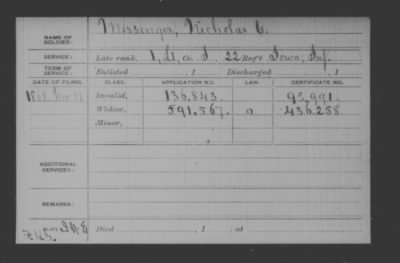 NAME OF SOLDIER: Messenger, Nicholas C.
SERVICE: Late rank, 1, Lt, Co. I, 22 Reg't Iowa, Inf.
TERM OF SERVICE: Enlisted , 1 Discharged , 1
DATE OF FILING. CLASS. APPLICATION NO. LAW. CERTIFICATE NO.
Invalid, 136.843. 95,991.
Widow, 591.567. 436.258
Minor, ,
ADDITIONAL SERVICES:
REMARKS:
Died , 1 , at